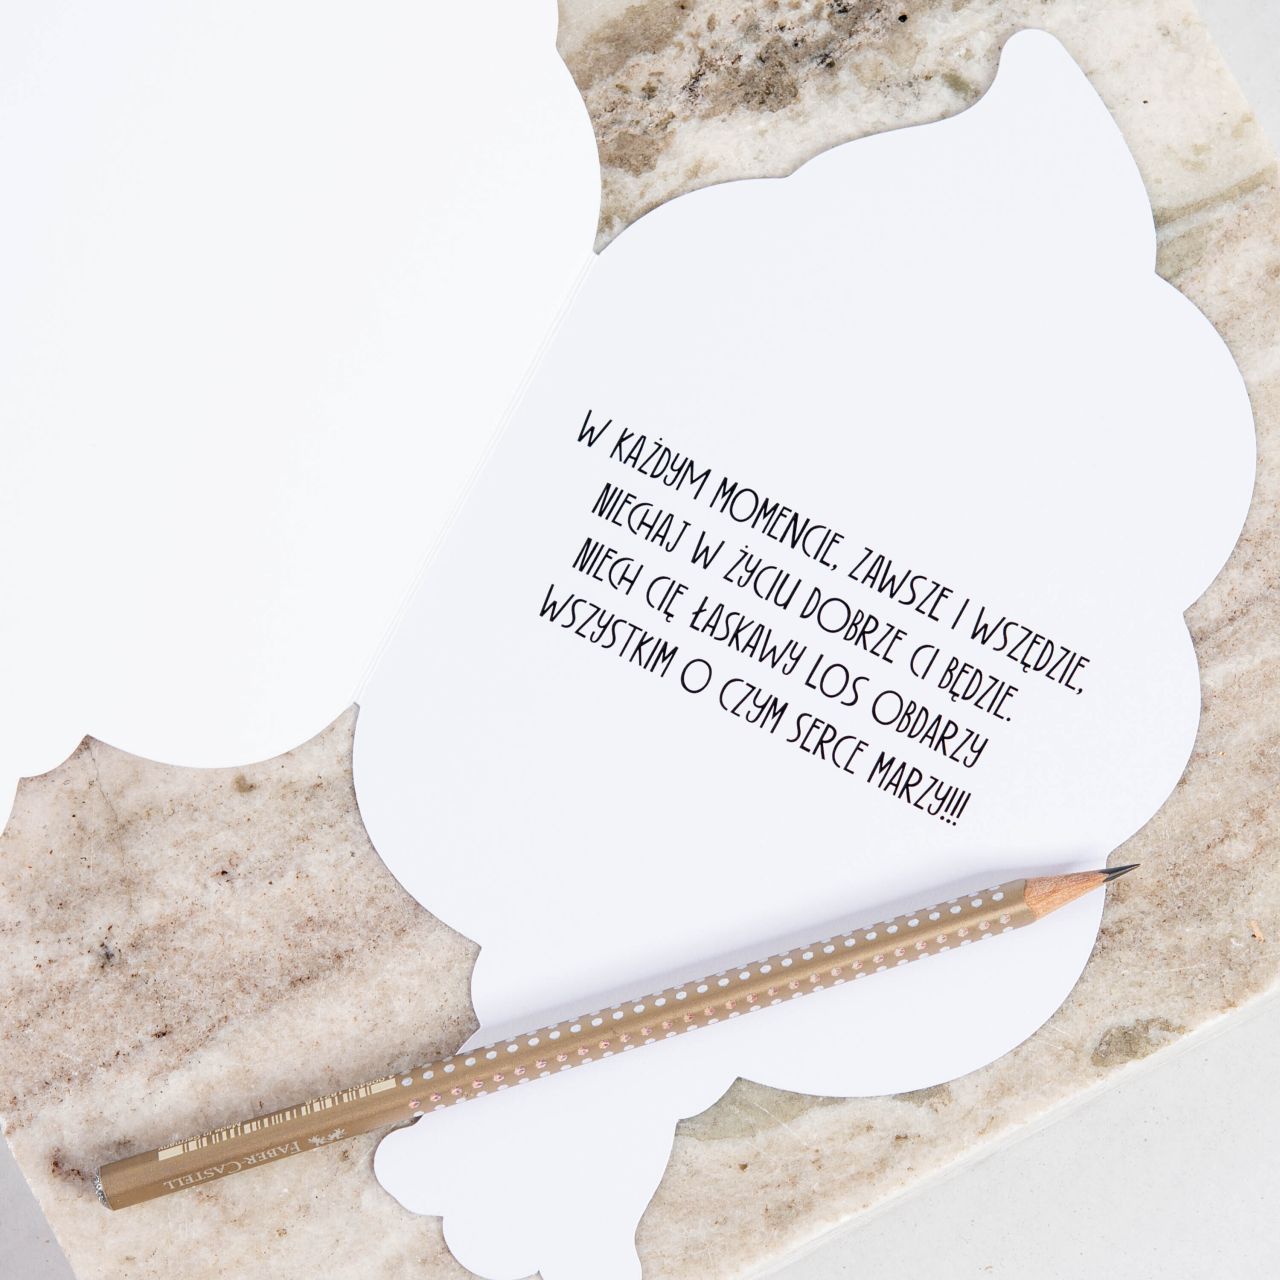 W KAŻDYM MOMENCIE, ZAWSZE I WSZĘDZIE,
NIECHAJ W ŻYCIU DOBRZE CI BĘDZIE.
NIECH CIĘ ŁASKAWY LOS OBDARZY
WSZYSTKIM O CZYM SERCE MARZY!!!
FABER-CASTELL
Made in Germany